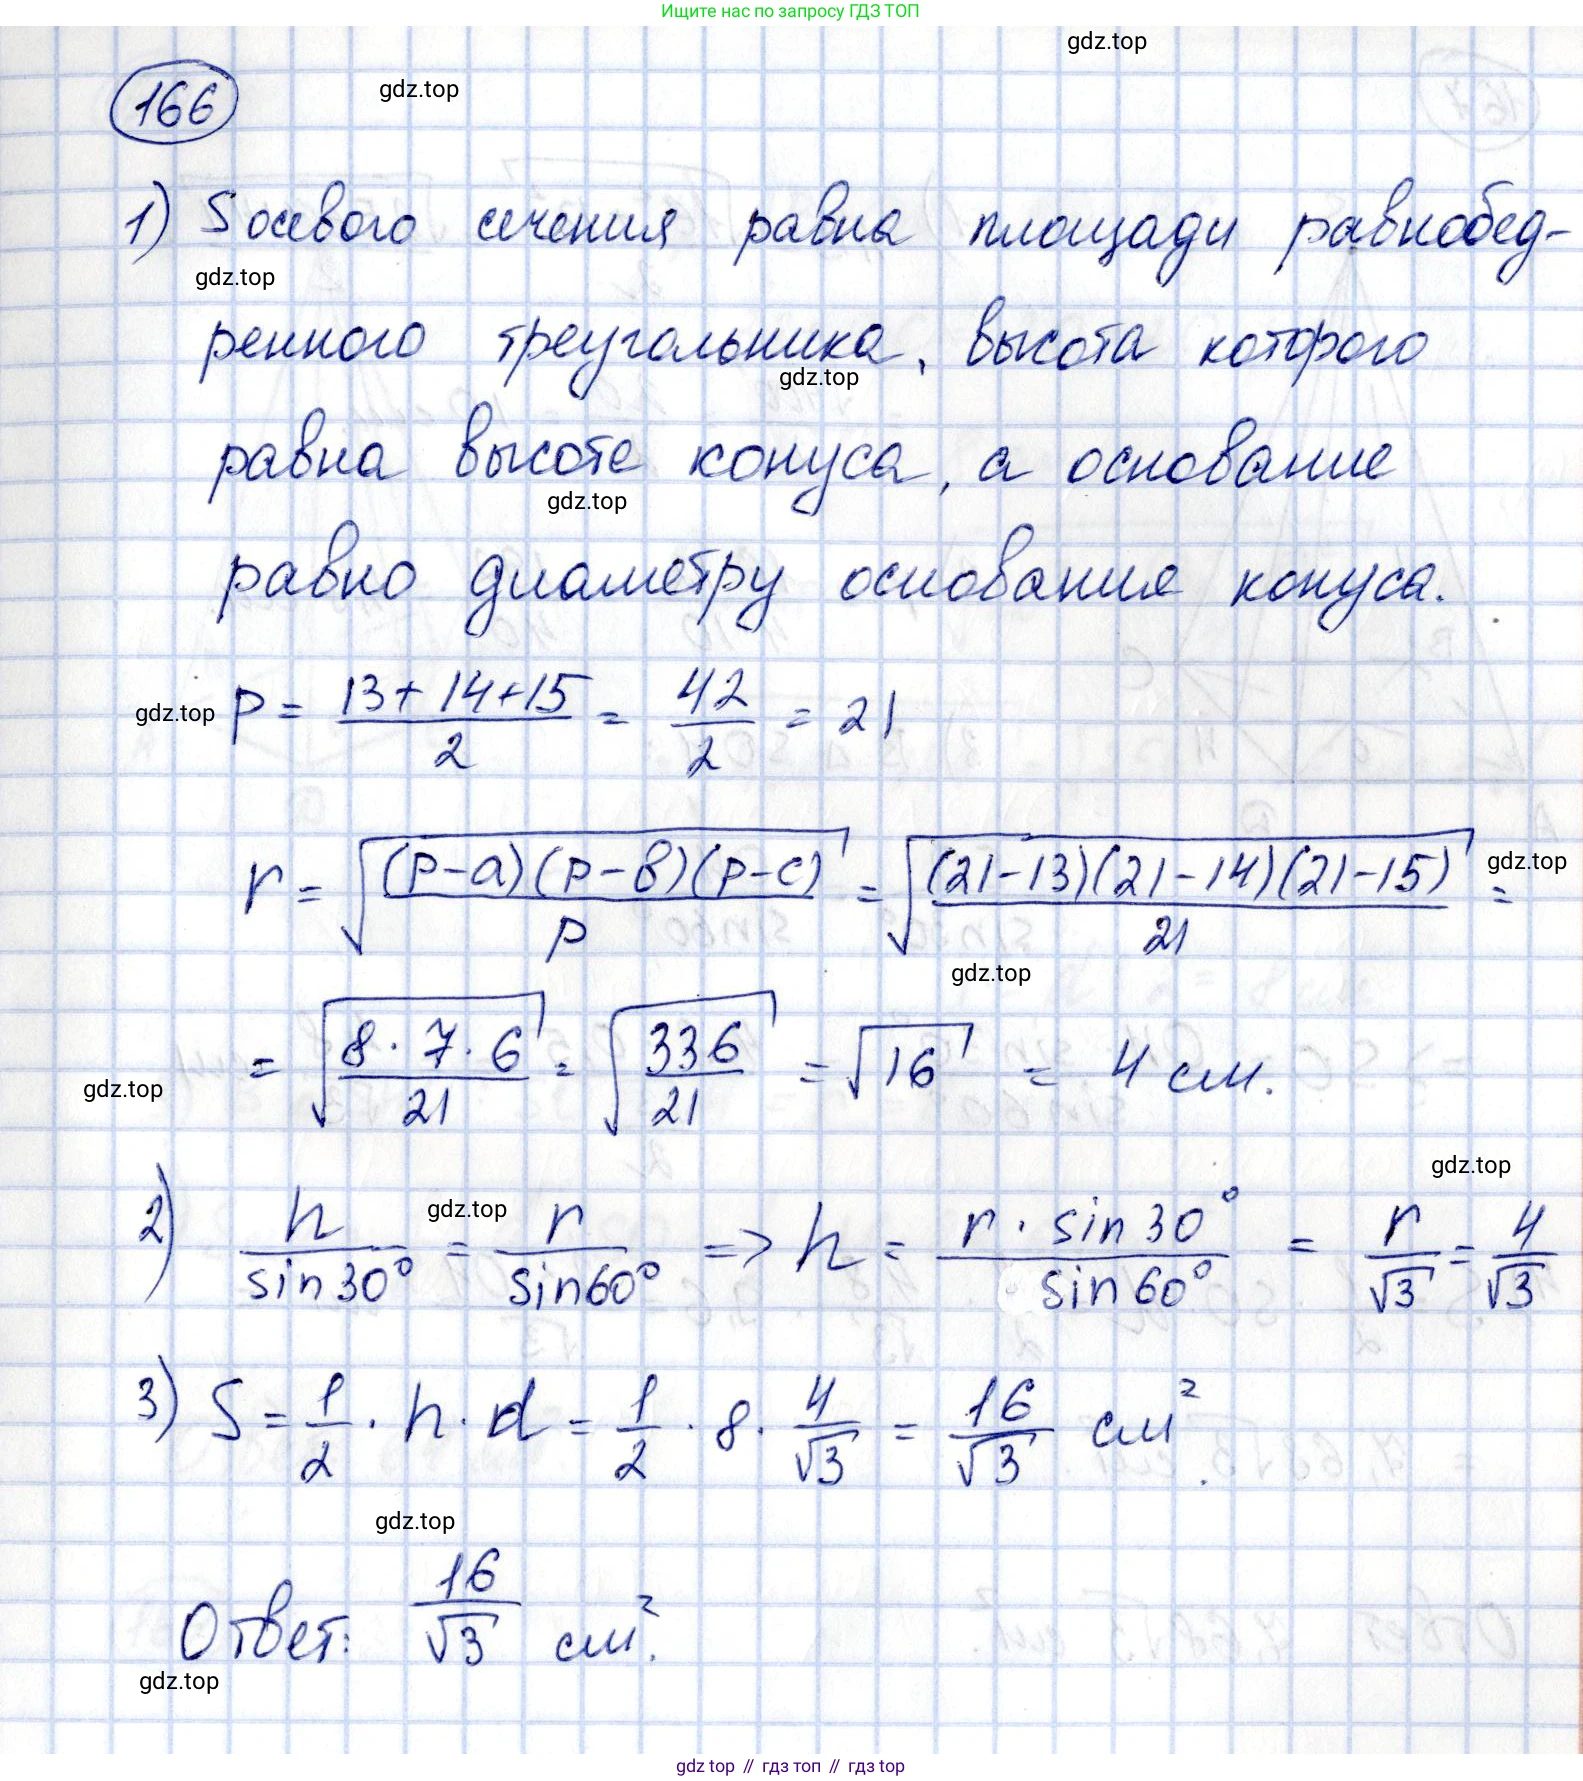 Ищите нас по запросу ГДЗ ТОП
gdz.top
166
gdz.top
1) S осевого сечения равна площади равнобед-
gdz.top
ренного треугольника, высота которого
gdz.top
равна высоте конуса, а основание
gdz.top
равно диаметру основания конуса.
gdz.top
p = (13+14+15)/2 = 42/2 = 21
r = √((p-a)(p-b)(p-c)/p) = √((21-13)(21-14)(21-15)/21) =
gdz.top
gdz.top
= √(8·7·6/21) = √(336/21) = √16 = 4 см.
gdz.top
gdz.top
gdz.top
2) h/sin30° = r/sin60° => h = r·sin30°/sin60° = r/√3 = 4/√3
3) S = 1/2 · h · d = 1/2 · 8 · 4/√3 = 16/√3 см².
gdz.top
Ответ: 16/√3 см².
gdz.top
gdz top // гдз топ // гдз top